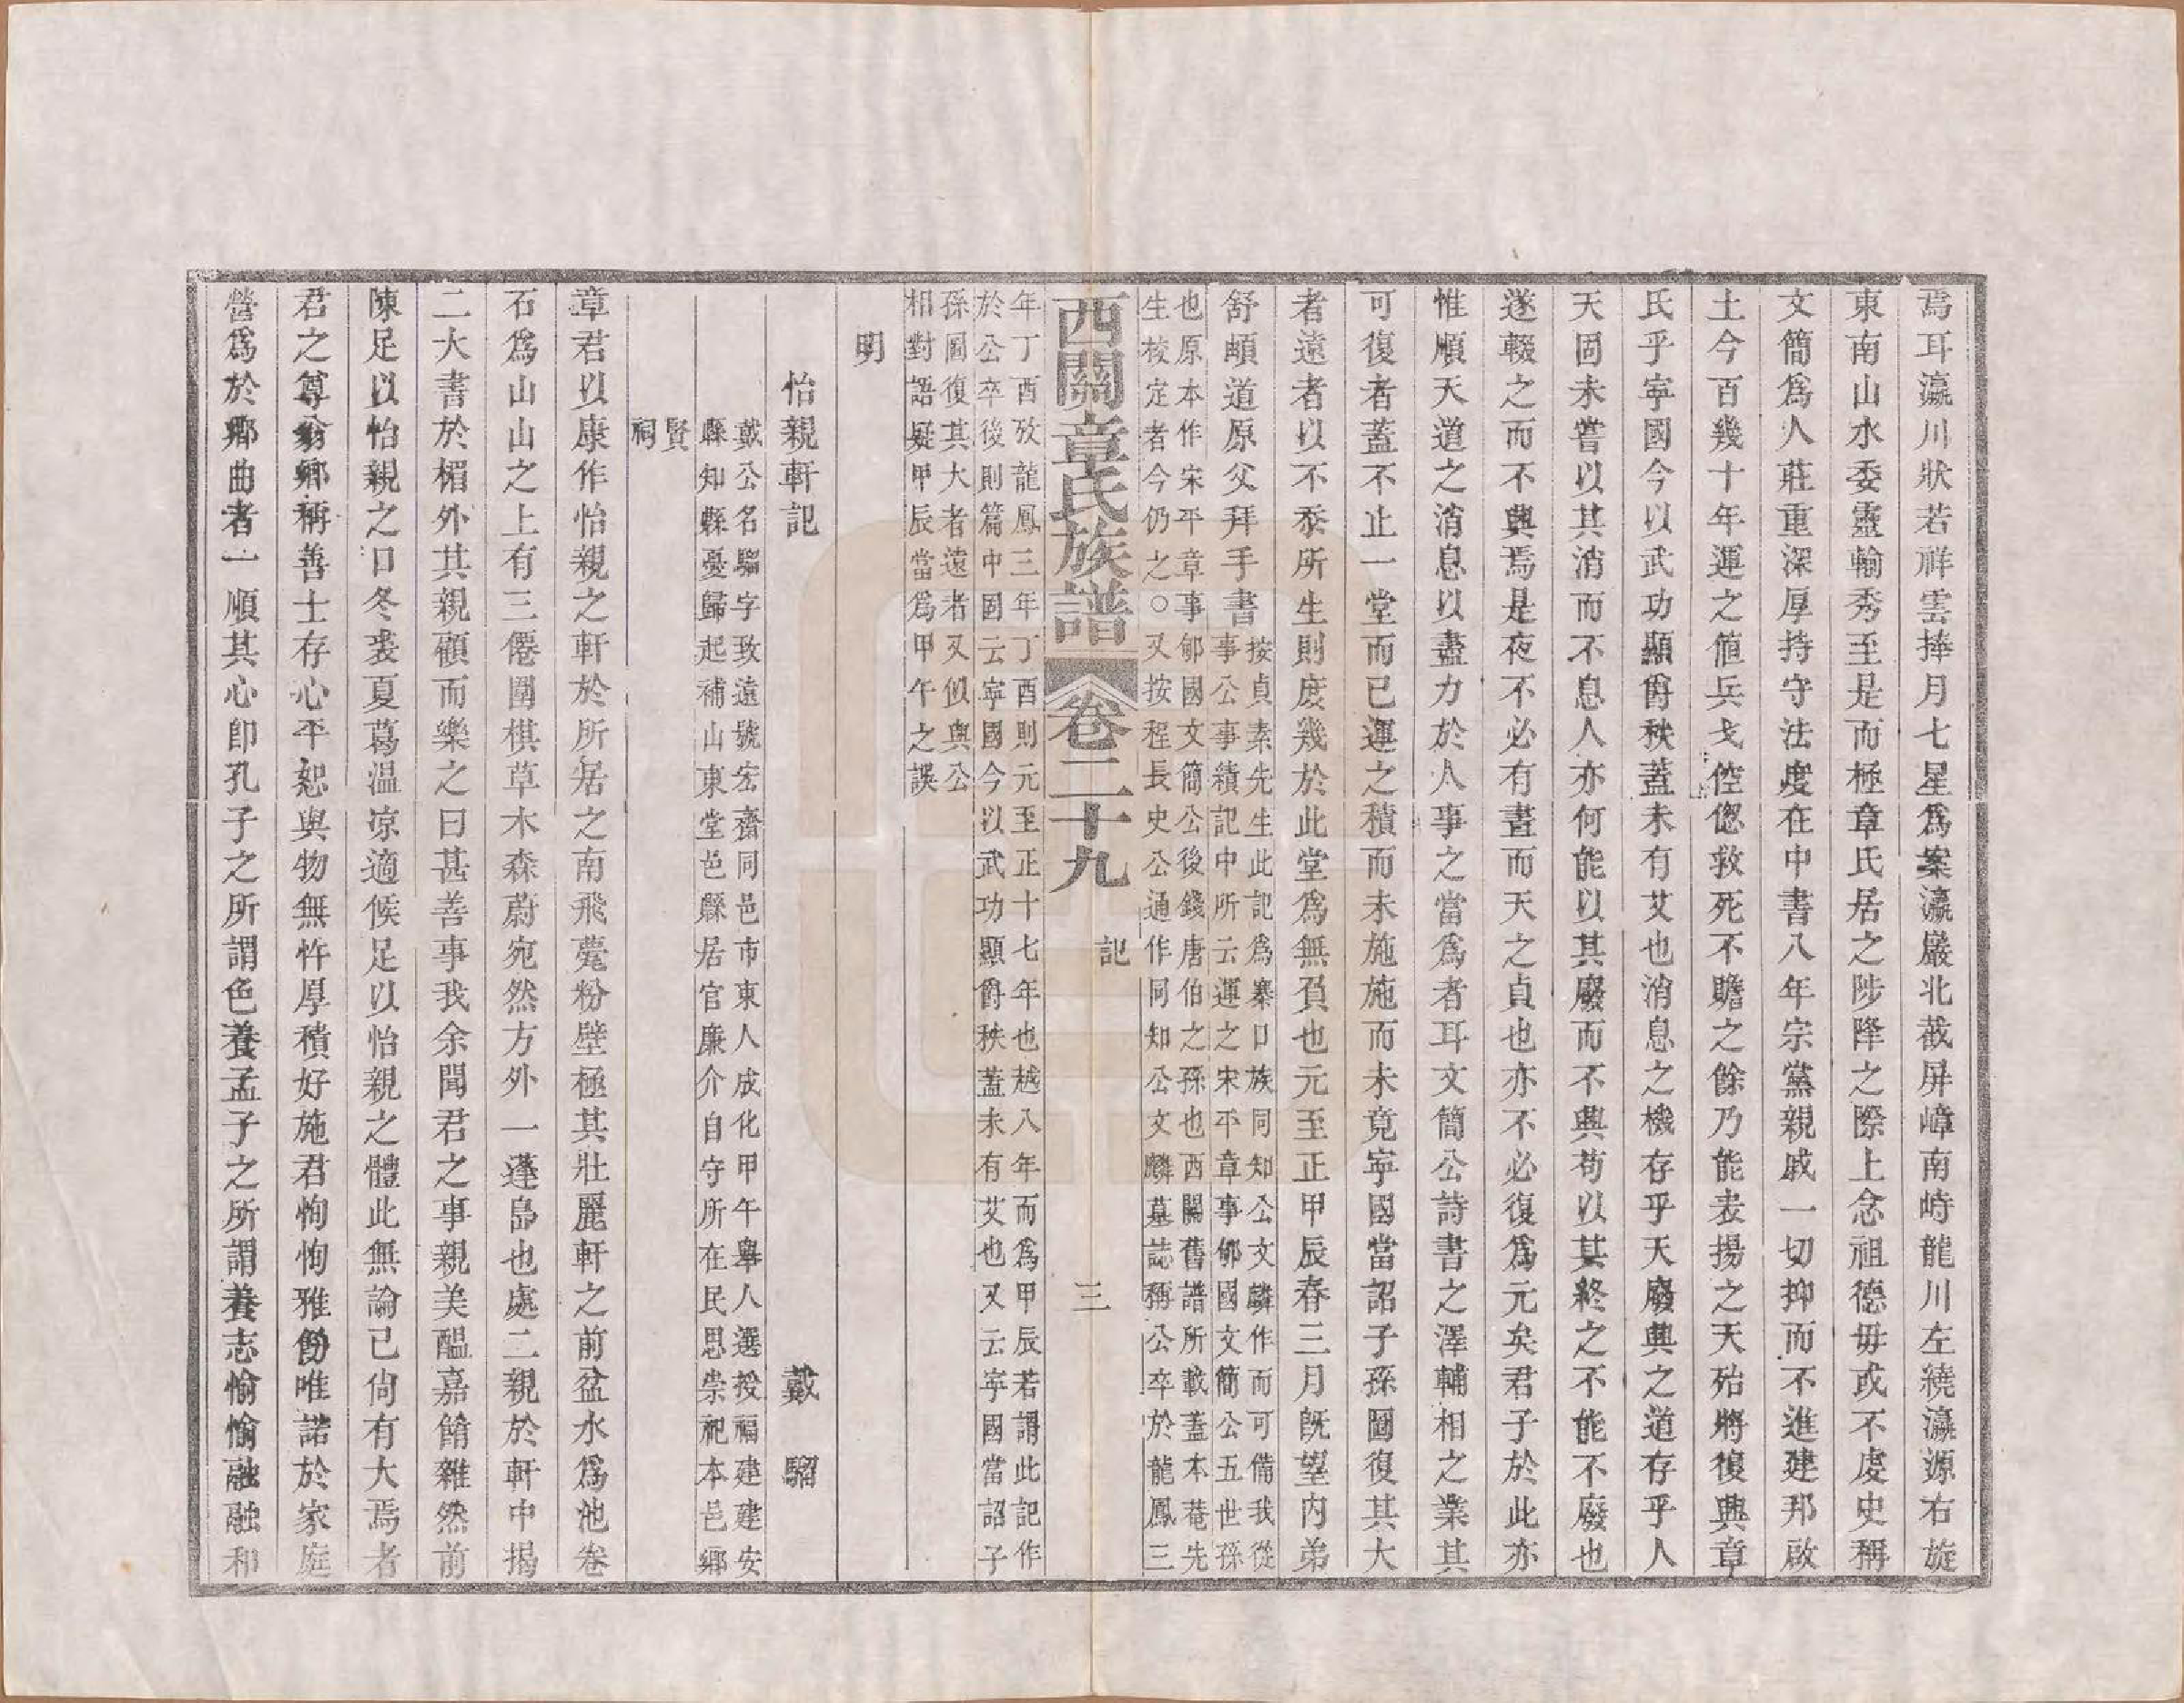 焉耳瀛川狀若祥雲捧月七星爲案瀛巖北截屏嶂南峙龍川左繞瀛源右旋
東南山水委靈輸秀至是而極章氏居之陟降之際上念祖德毋或不虔史稱
文簡爲人莊重深厚持守法度在中書八年宗黨親戚一切抑而不進建邦啟
土今百幾十年運之值兵戈倥偬救死不贍之餘乃能表揚之天殆將復興章
氏乎寧國今以武功顯爵秩蓋未有艾也消息之機存乎天廢興之道存乎人
天固未嘗以其消而不息人亦何能以其廢而不興苟以其終之不能不廢也
遂輟之而不興焉是夜不必有晝而天之貞也亦不必復爲元矣君子於此亦
惟順天道之消息以盡力於人事之當爲者耳文簡公詩書之澤輔相之業其
可復者蓋不止一堂而已運之積而未施施而未竟寧國當詔子孫圖復其大
者遠者以不忝所生則庶幾於此堂爲無負也元至正甲辰春三月旣望內弟
舒頔道原父拜手書
按貞素先生此記爲寨口族同知公文麟作而可備我從
事公事積記中所云運之宋平章事郇國文簡公五世孫
也原本作宋平章事郇國文簡公後錢唐伯之孫也西關舊譜所載蓋本菴先
生校定者今仍之○又按程長史公通作同知公文麟墓誌稱公卒於龍鳳三
西關章氏族譜 卷二十九 記 三
年丁酉攷龍鳳三年丁酉則元至正十七年也越八年而爲甲辰若謂此記作
於公卒後則篇中固云寧國今以武功顯爵秩蓋未有艾也又云寧國當詔子
孫圖復其大者遠者又似與公
相對語疑甲辰當爲甲午之誤
明
怡親軒記 戴騮
戴公名騮字致遠號宏齋同邑市東人成化甲午舉人選授福建建安
縣知縣憂歸起補山東堂邑縣居官廉介自守所在民思崇祀本邑鄉
賢
祠
章君以康作怡親之軒於所居之南飛甍粉壁極其壯麗軒之前盆水爲池卷
石爲山山之上有三僊圍棋草木森蔚宛然方外一蓬島也處二親於軒中揭
二大書於楣外其親顧而樂之曰甚善事我余聞君之事親美醞嘉餚雜然前
陳足以怡親之口冬裘夏葛溫凉適候足以怡親之體此無論已尙有大焉者
君之尊翁鄉稱善士存心平恕與物無忤厚積好施君恂恂雅飭唯諾於家庭
營爲於鄉曲者一順其心卽孔子之所謂色養孟子之所謂養志愉愉融融和